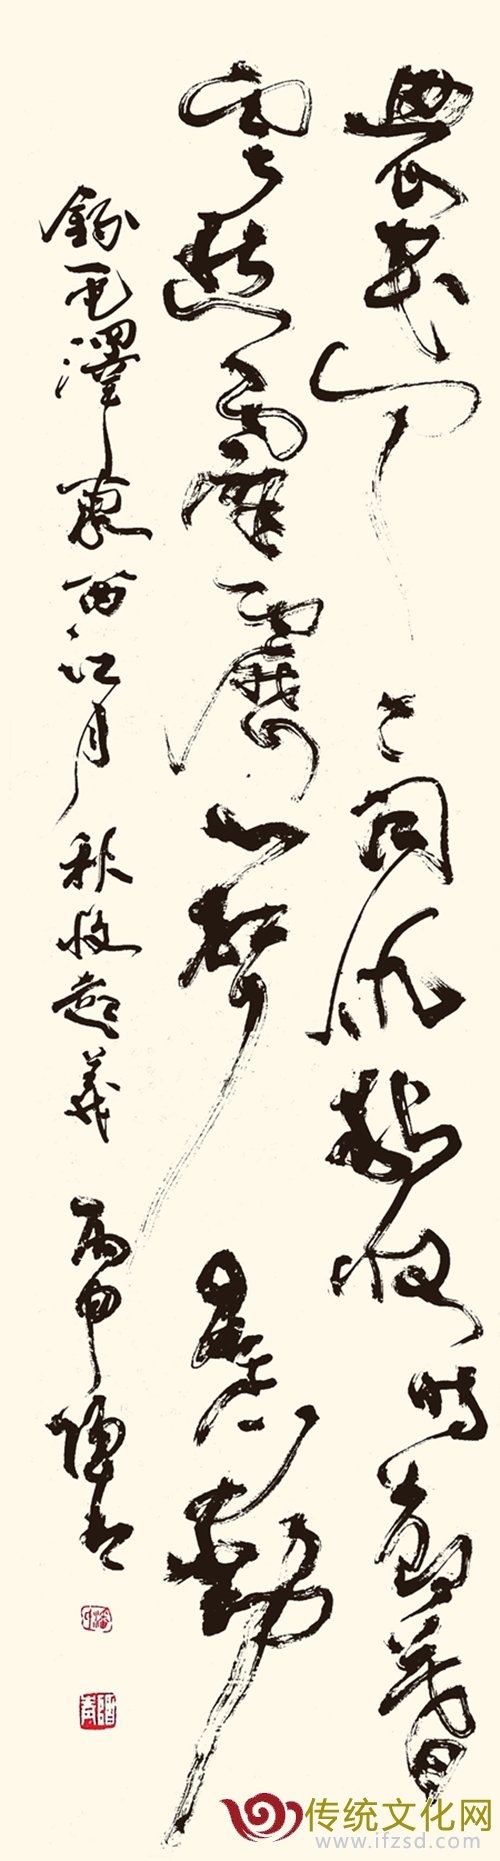 農民个々同仇秋收時節暮
雲愁霹靂一聲暴動
錄毛澤東西江月秋收起義 丙申
传统文化网
www.ifzsd.com